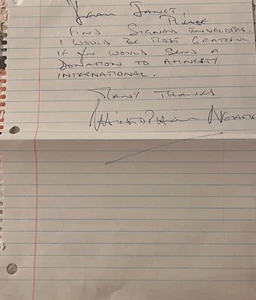 Dear Janet,
Please
find signed envelopes.
I would be most grateful
if you would send a
donation to Amnesty
International.
Many Thanks